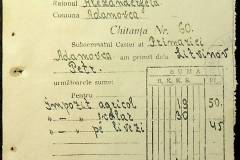 Raionul Alexandreşti
Comuna Adamovca
Chitanţa Nr. 60.
Subsemnatul Casier al Primăriei
Adamovca am primit dela Litvinov
Petr.
următoarele sume:
SUMA
Pentru
Impozit agricol 19 50.
" — şcolar 30
" — pe livezi 45